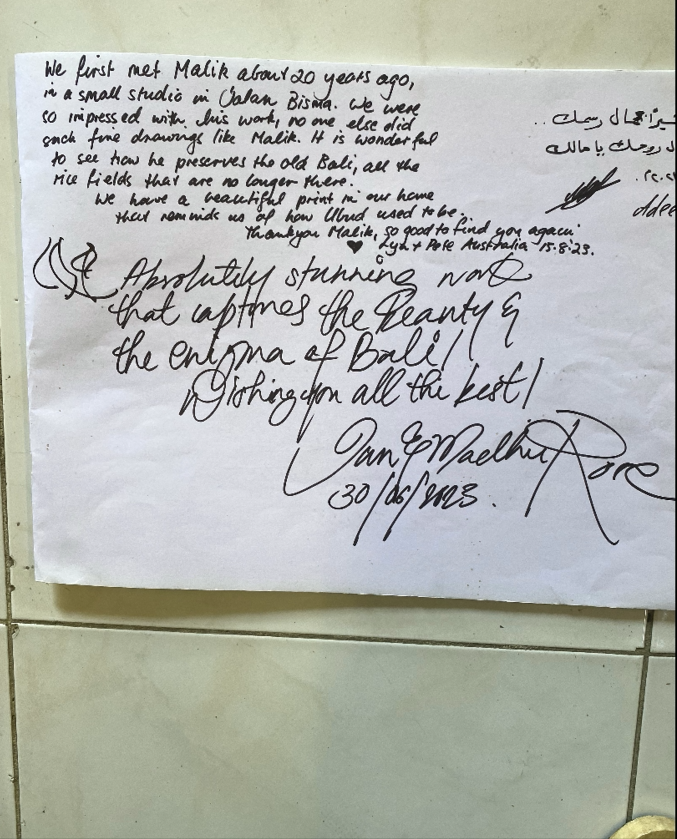 We first met Malik about 20 years ago,
in a small studio in Jalan Bisma. We were
so impressed with his work, no one else did
such fine drawings like Malik. It is wonderful
to see how he preserves the old Bali, all the
rice fields that are no longer there.
We have a beautiful print in our home
that reminds us of how Ubud used to be.
Thankyou Malik, so good to find you again
♥ Lyn + Pete Australia 15.8.23.
Absolutely stunning work
that captures the Beauty &
the enigma of Bali!
Wishing you all the best!
Ian & Madhu
30/06/2023.
جمال رسمك ..
روحك يا مالك